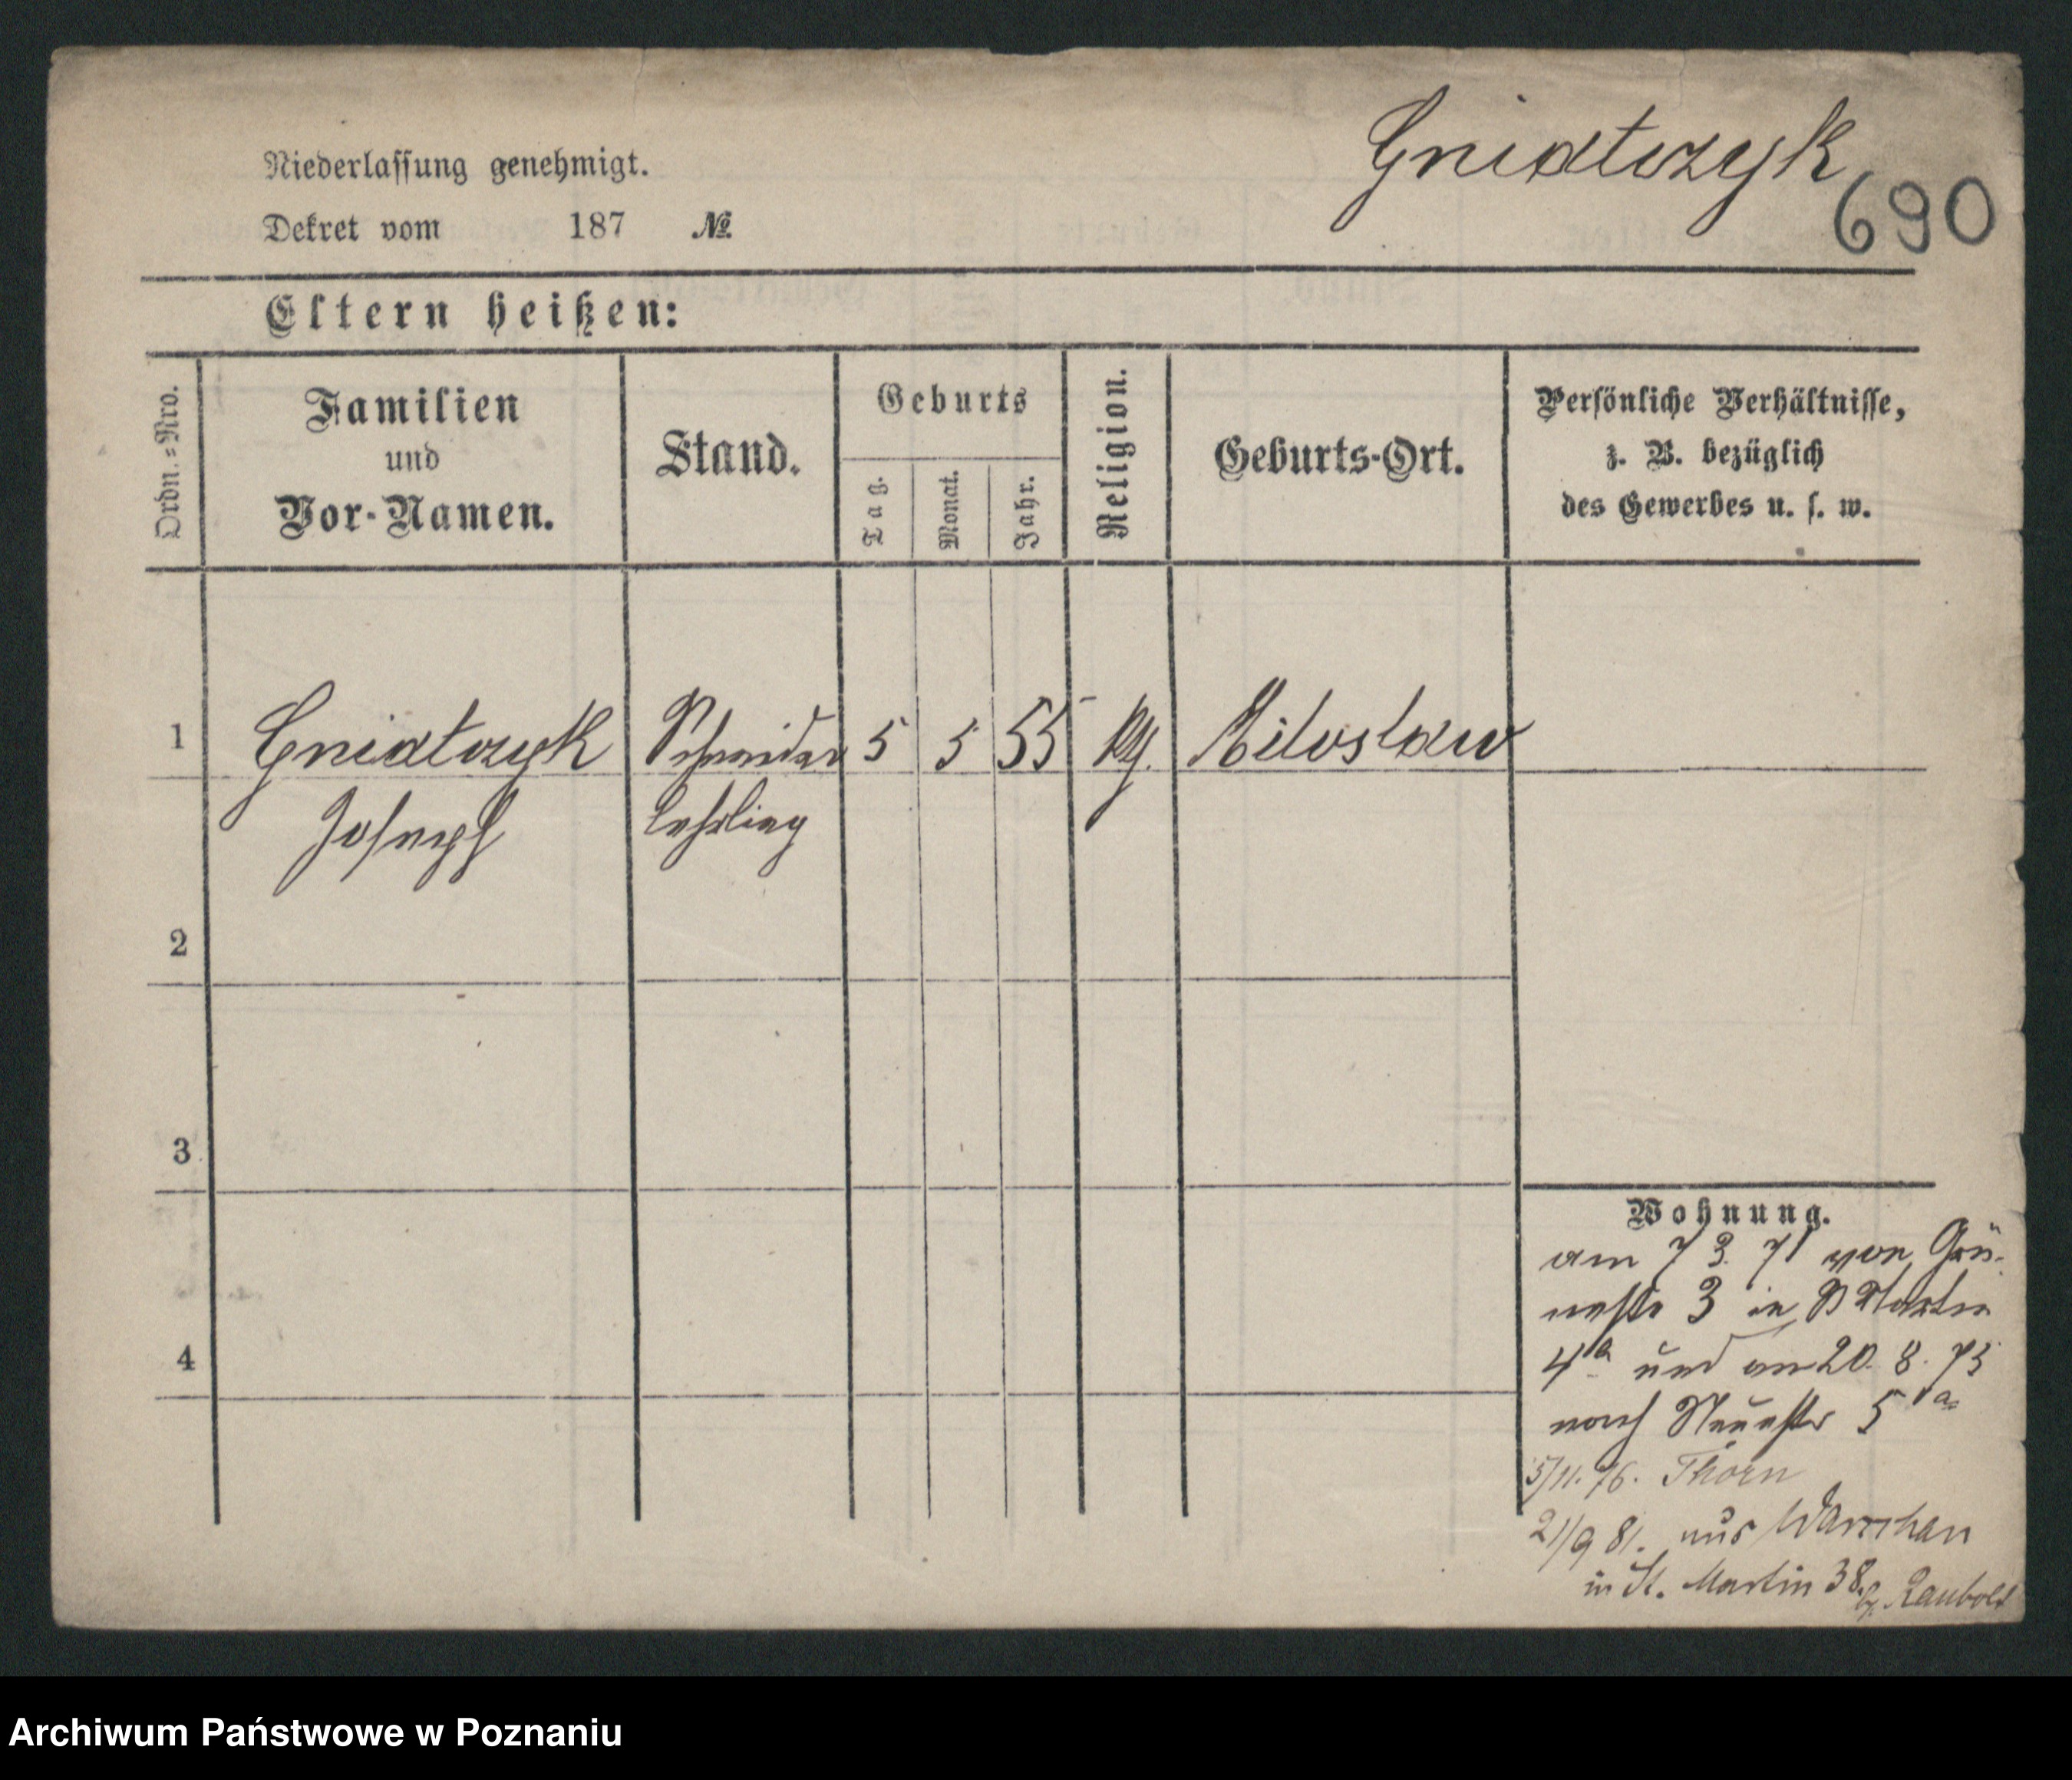 Gniatczyk
690
Niederlassung genehmigt.
Dekret vom 187 №
Eltern heißen:
Ordn.=Nro.
Familien
und
Vor-Namen.
Stand.
Geburts
Tag.
Monat.
Jahr.
Religion.
Geburts-Ort.
Persönliche Verhältnisse,
z. B. bezüglich
des Gewerbes u. s. w.
1 Gniatczyk Schneider 5 5 55 Miloslaw
Joseph lehrling
2
3
4
Wohnung.
am 7 3. 71 von Grü-
nestr 3 in S Martin
4a und am 20. 8. 73
nach Neuestr 5a
5/11. 76. Thorn
21/9 81. aus Warschau
in St. Martin 38
Archiwum Państwowe w Poznaniu